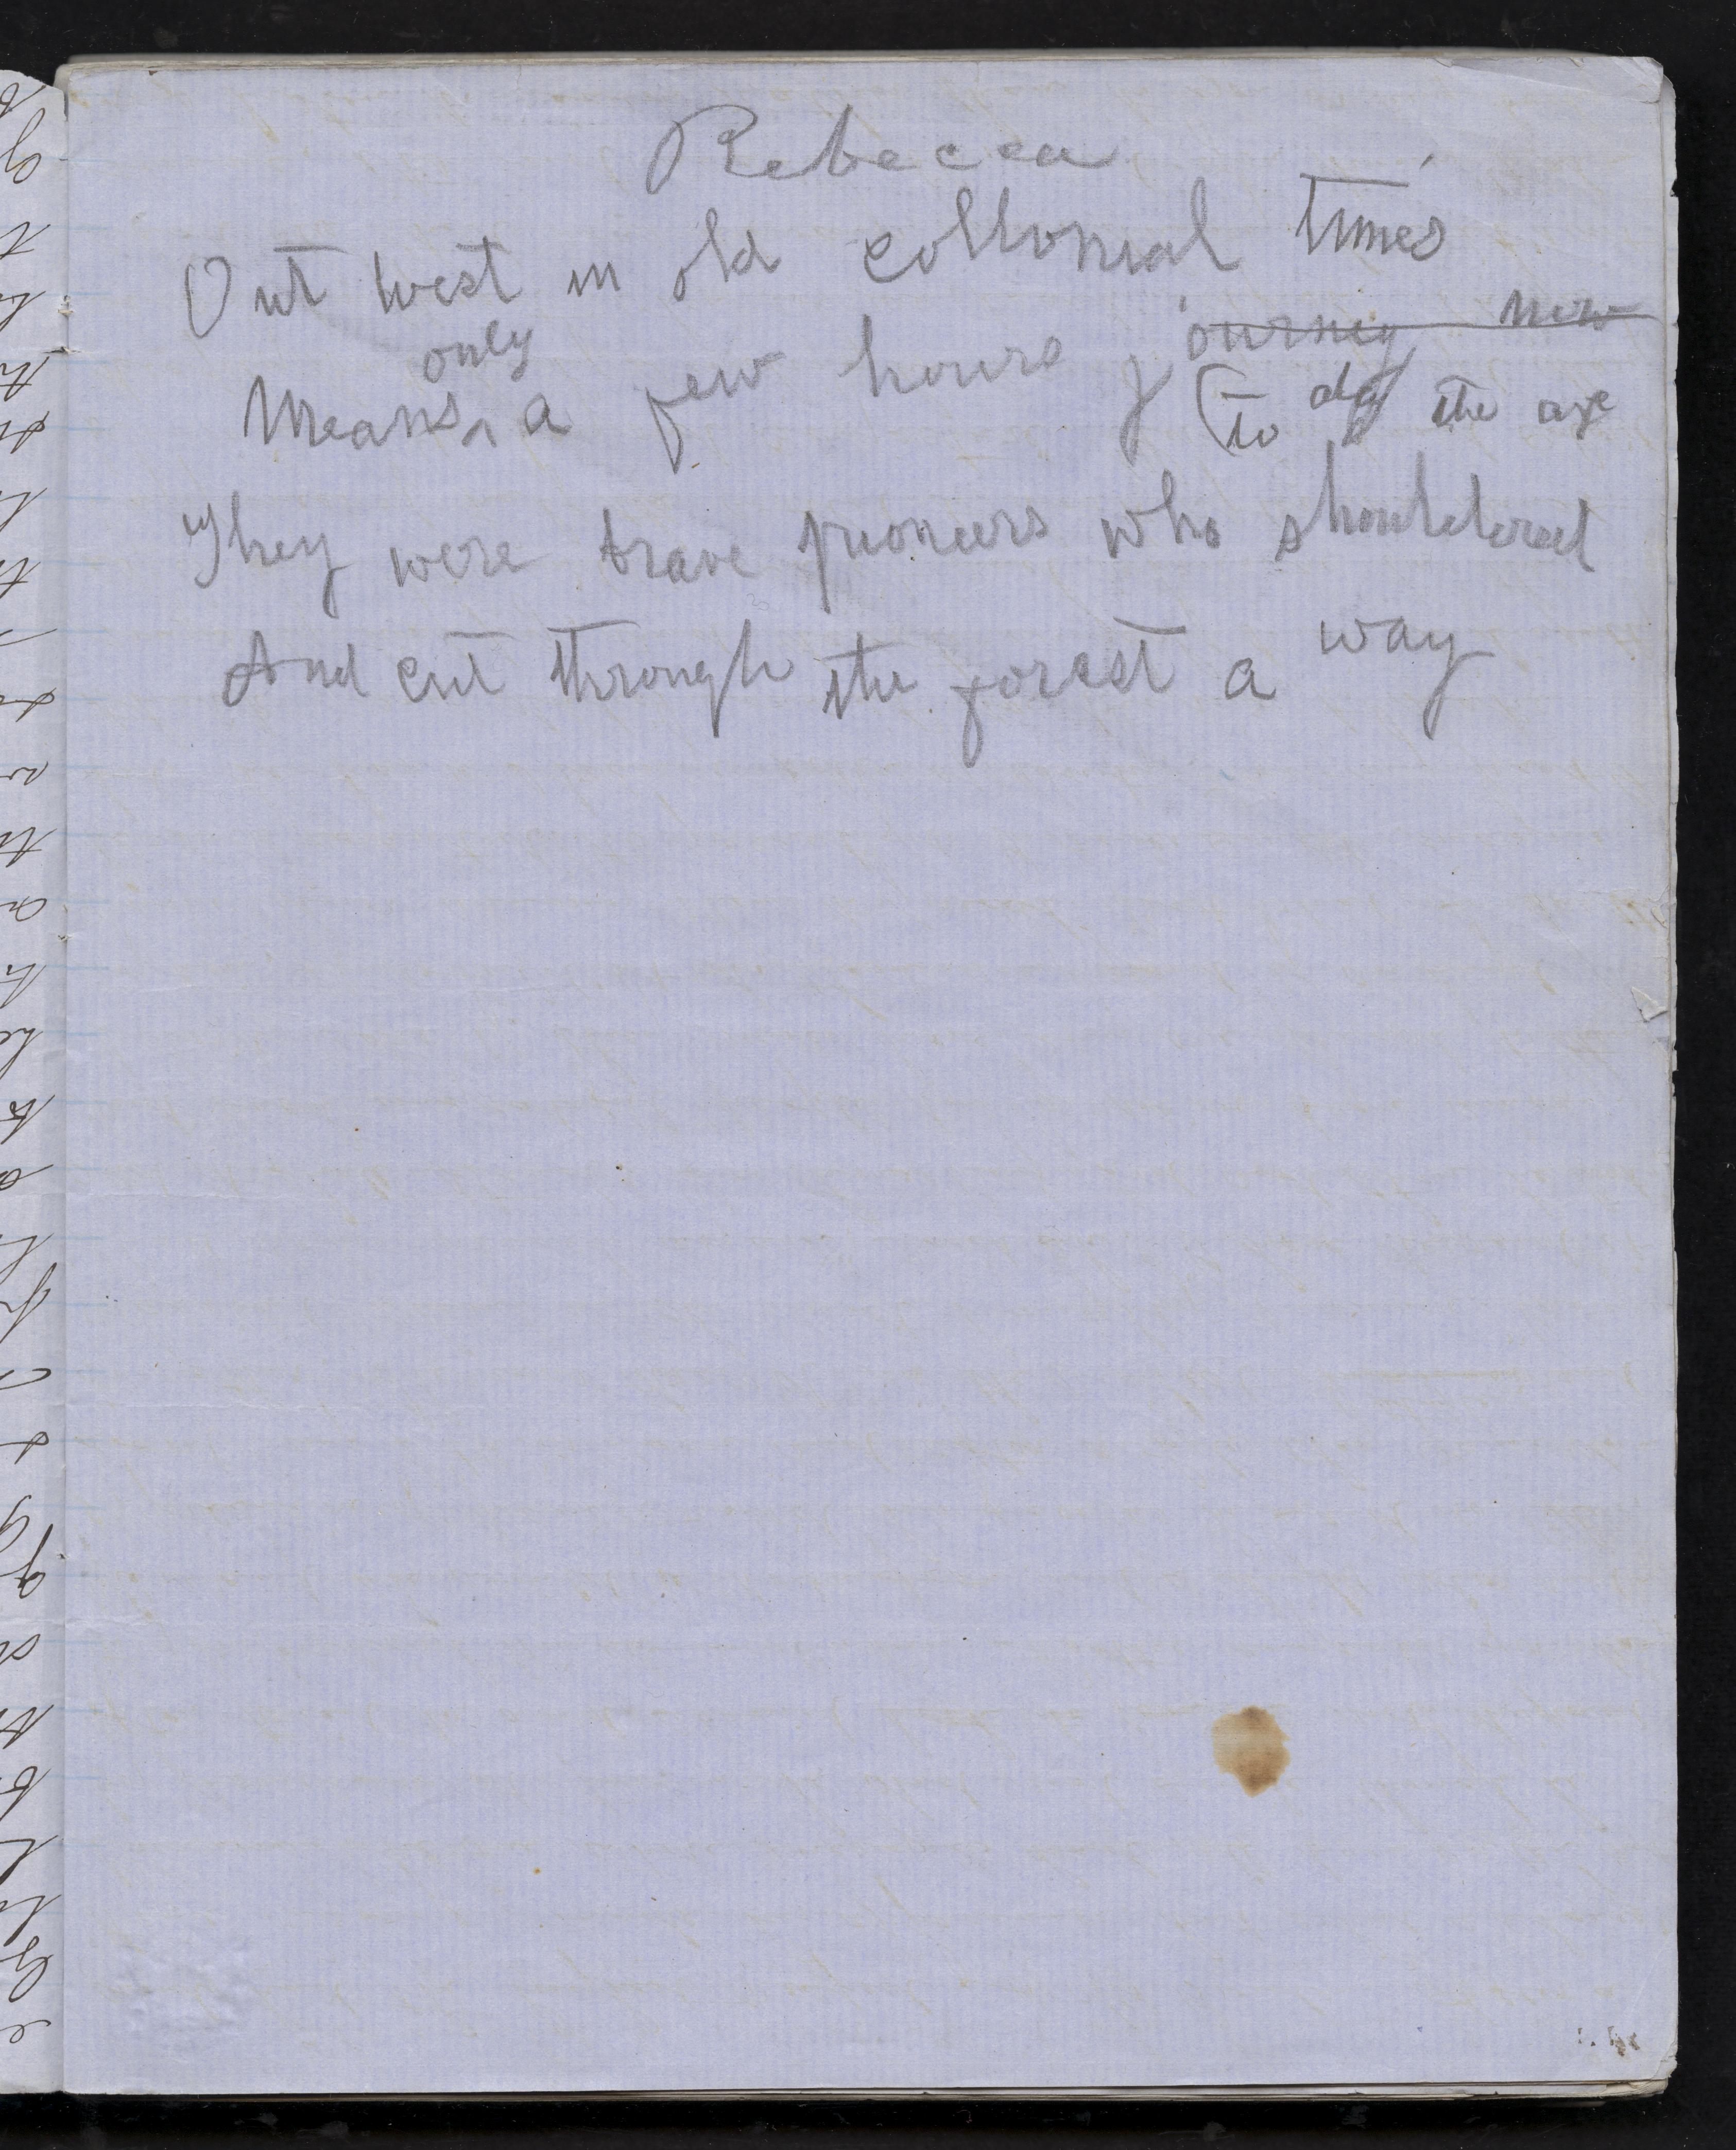 Rebecca
Out west in old collonial times
only
Means a few hours journey now
(to day the axe
They were brave pioneers who shouldered
And cut through the forest a way